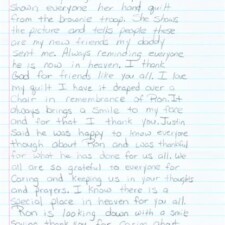 Shows everyone her hand quilt
from the brownie troop. She shows
the picture and tells people these
are my new friends my daddy
sent me. Always reminding everyone
he is now in heaven. I thank
God for friends like you all. I love
my quilt I have it draped over a
Chair in remembrance of Ron. It
always brings a smile to my face
and for that I thank you. Justin
said he was happy to know everyone
though about Ron and was thankful
for what he has done for us all. We
all are so grateful to everyone for
Caring and keeping us in your thoughts
and prayers. I know there is a
special place in heaven for you all.
Ron is looking down with a smile
saying thank you for caring about